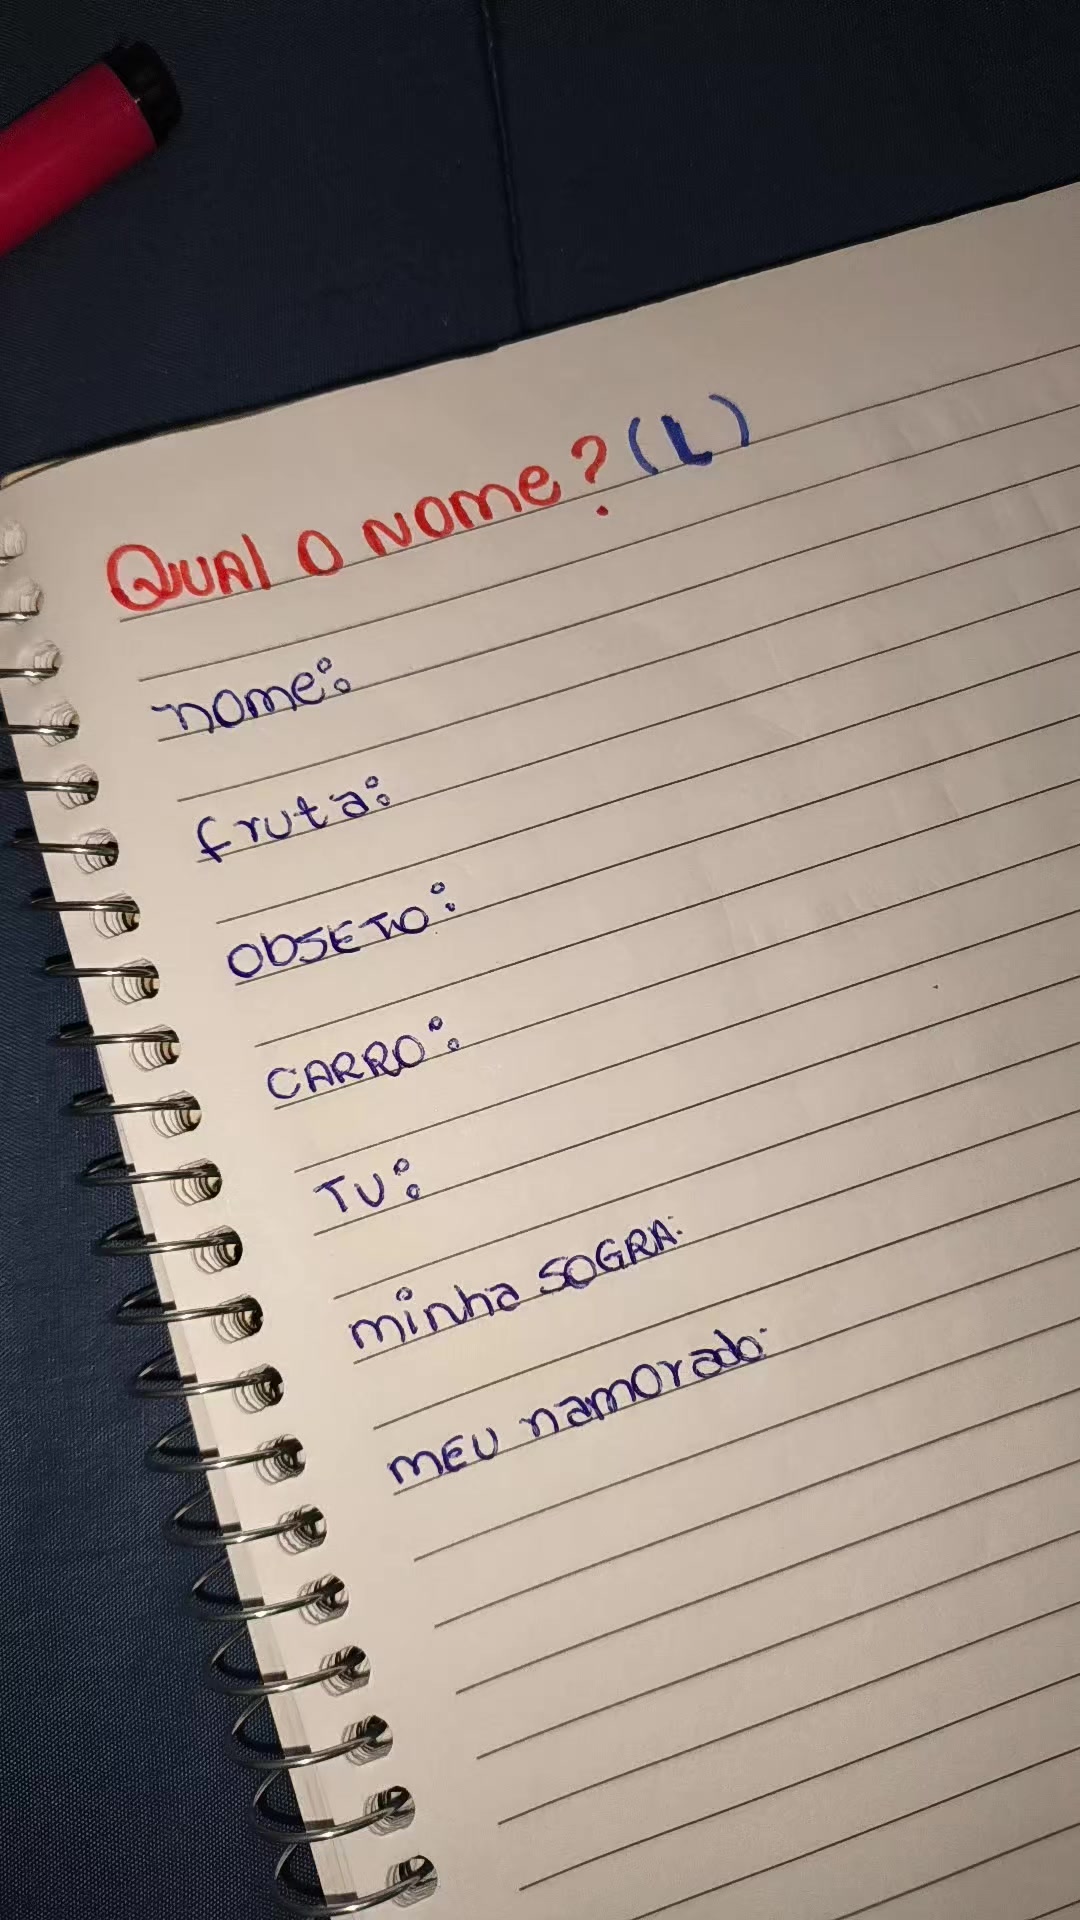 Qual o nome? (L)
nome:
fruta:
OBSETO:
CARRO:
TU:
minha SOGRA:
MEU namorado: